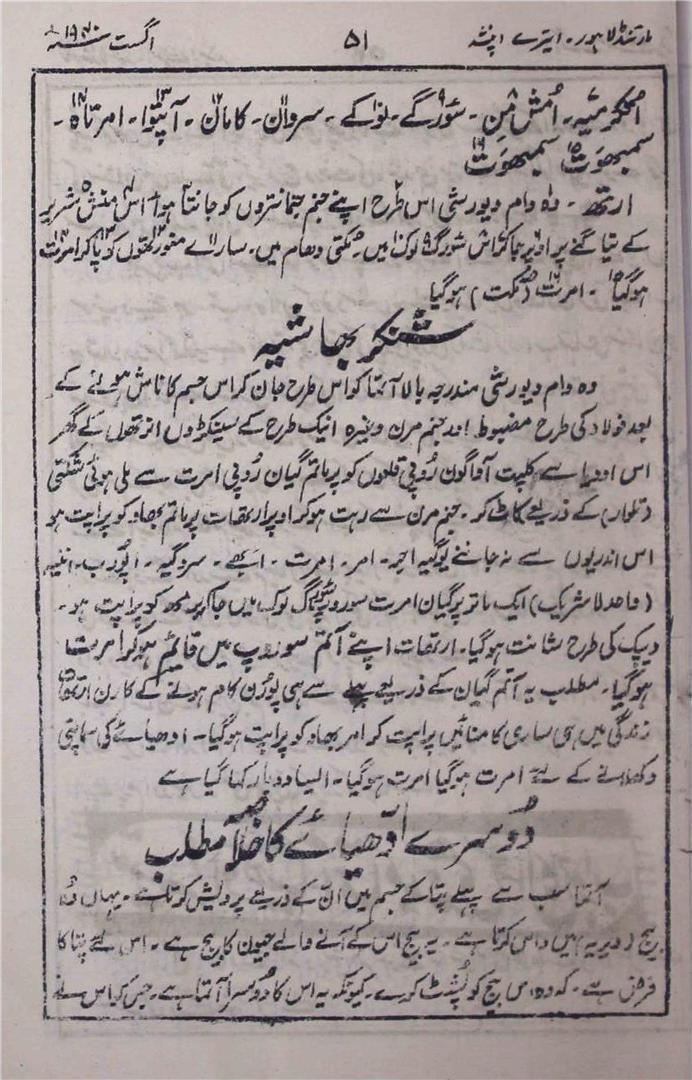 مارتنڈ لاہور۔ ایترے اپنشد ۵۱ اگست سنہ ۱۹۴۰ء
اتکرمیہ۔ اُمش من۔ سورگے۔ لوکے۔ سروان۔ کامان۔ آپتوا۔ امرتاہ۔
سمبھوت سمبھوت
ارتھ۔ وہ وام دیو رشی اس طرح اپنے جنم جنمانتروں کو جانتا ہوا اس منش شریر
کے تیاگنے پر اوپر جا کر اس سورگ لوک میں۔ مکتی دھام میں۔ سارے منورتھوں کو پا کر امرت
ہو گیا۔ امرت (مکت) ہو گیا
شنکر بھاشیہ
وہ وام دیو رشی مندرجہ بالا آتما کو اس طرح جان کر اس جسم کا ناش ہونے کے
بعد فولاد کی طرح مضبوط اور جنم مرن وغیرہ انیک طرح کے سینکڑوں انرتھوں کے گھر
اس اودیا سے کلپت آواگون رُوپی قلعوں کو پرماتم گیان رُوپی امرت سے ملی ہوئی شکتی
(تلوار) کے ذریعے کاٹ کر۔ جنم مرن سے رہت ہو کر اوپر ارتھات پرماتم بھاو کو پراپت ہو
اس اندریوں سے نہ جاننے یوگیہ اجر۔ امر۔ امرت۔ ابھے۔ سروگیہ۔ اپورب۔
(واحد لاشریک) ایک ماتر پرگیان امرت سوروپ سورگ لوک میں جا کر برہم کو پراپت ہو۔
دیپک کی طرح شانت ہو گیا۔ ارتھات اپنے آتم سوروپ میں قائم ہو کر امرت
ہو گیا۔ مطلب یہ آتم گیان کے ذریعے پہلے سے ہی پورن کام ہونے کے کارن ارتھات
زندگی میں ہی ساری کامنائیں پراپت کر امر بھاو کو پراپت ہو گیا۔ ادھیائے کی سماپتی
دکھلانے کے لئے امرت ہو گیا امرت ہو گیا۔ ایسا دو بار کہا گیا ہے
دُوسرے ادھیائے کا خلاصہ مطلب
آتما سب سے پہلے پتا کے جسم میں اَنّ کے ذریعے پرویش کرتا ہے۔ یہاں وہ
بیج (ویریہ) میں واس کرتا ہے۔ یہ بیج اس کے آنے والے جیون کا بیج ہے۔ اس لئے پتا کا
فرض ہے۔ کہ وہ اس بیج کو پُشٹ کرے۔ کیونکہ یہ اس کا دُوسرا آتما ہے۔ جس کو اس نے